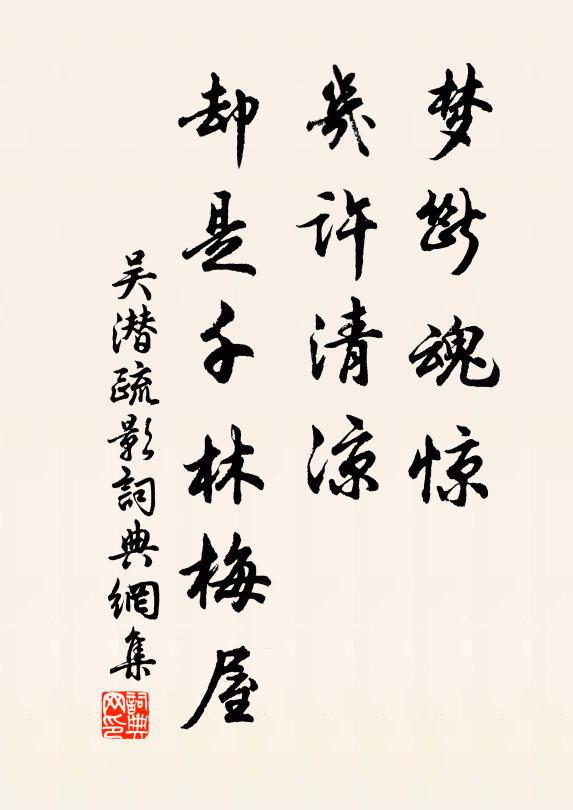 梦断魂惊
几许清凉
却是千林梅屋
吴潜疏影詞典網集
詞典网印